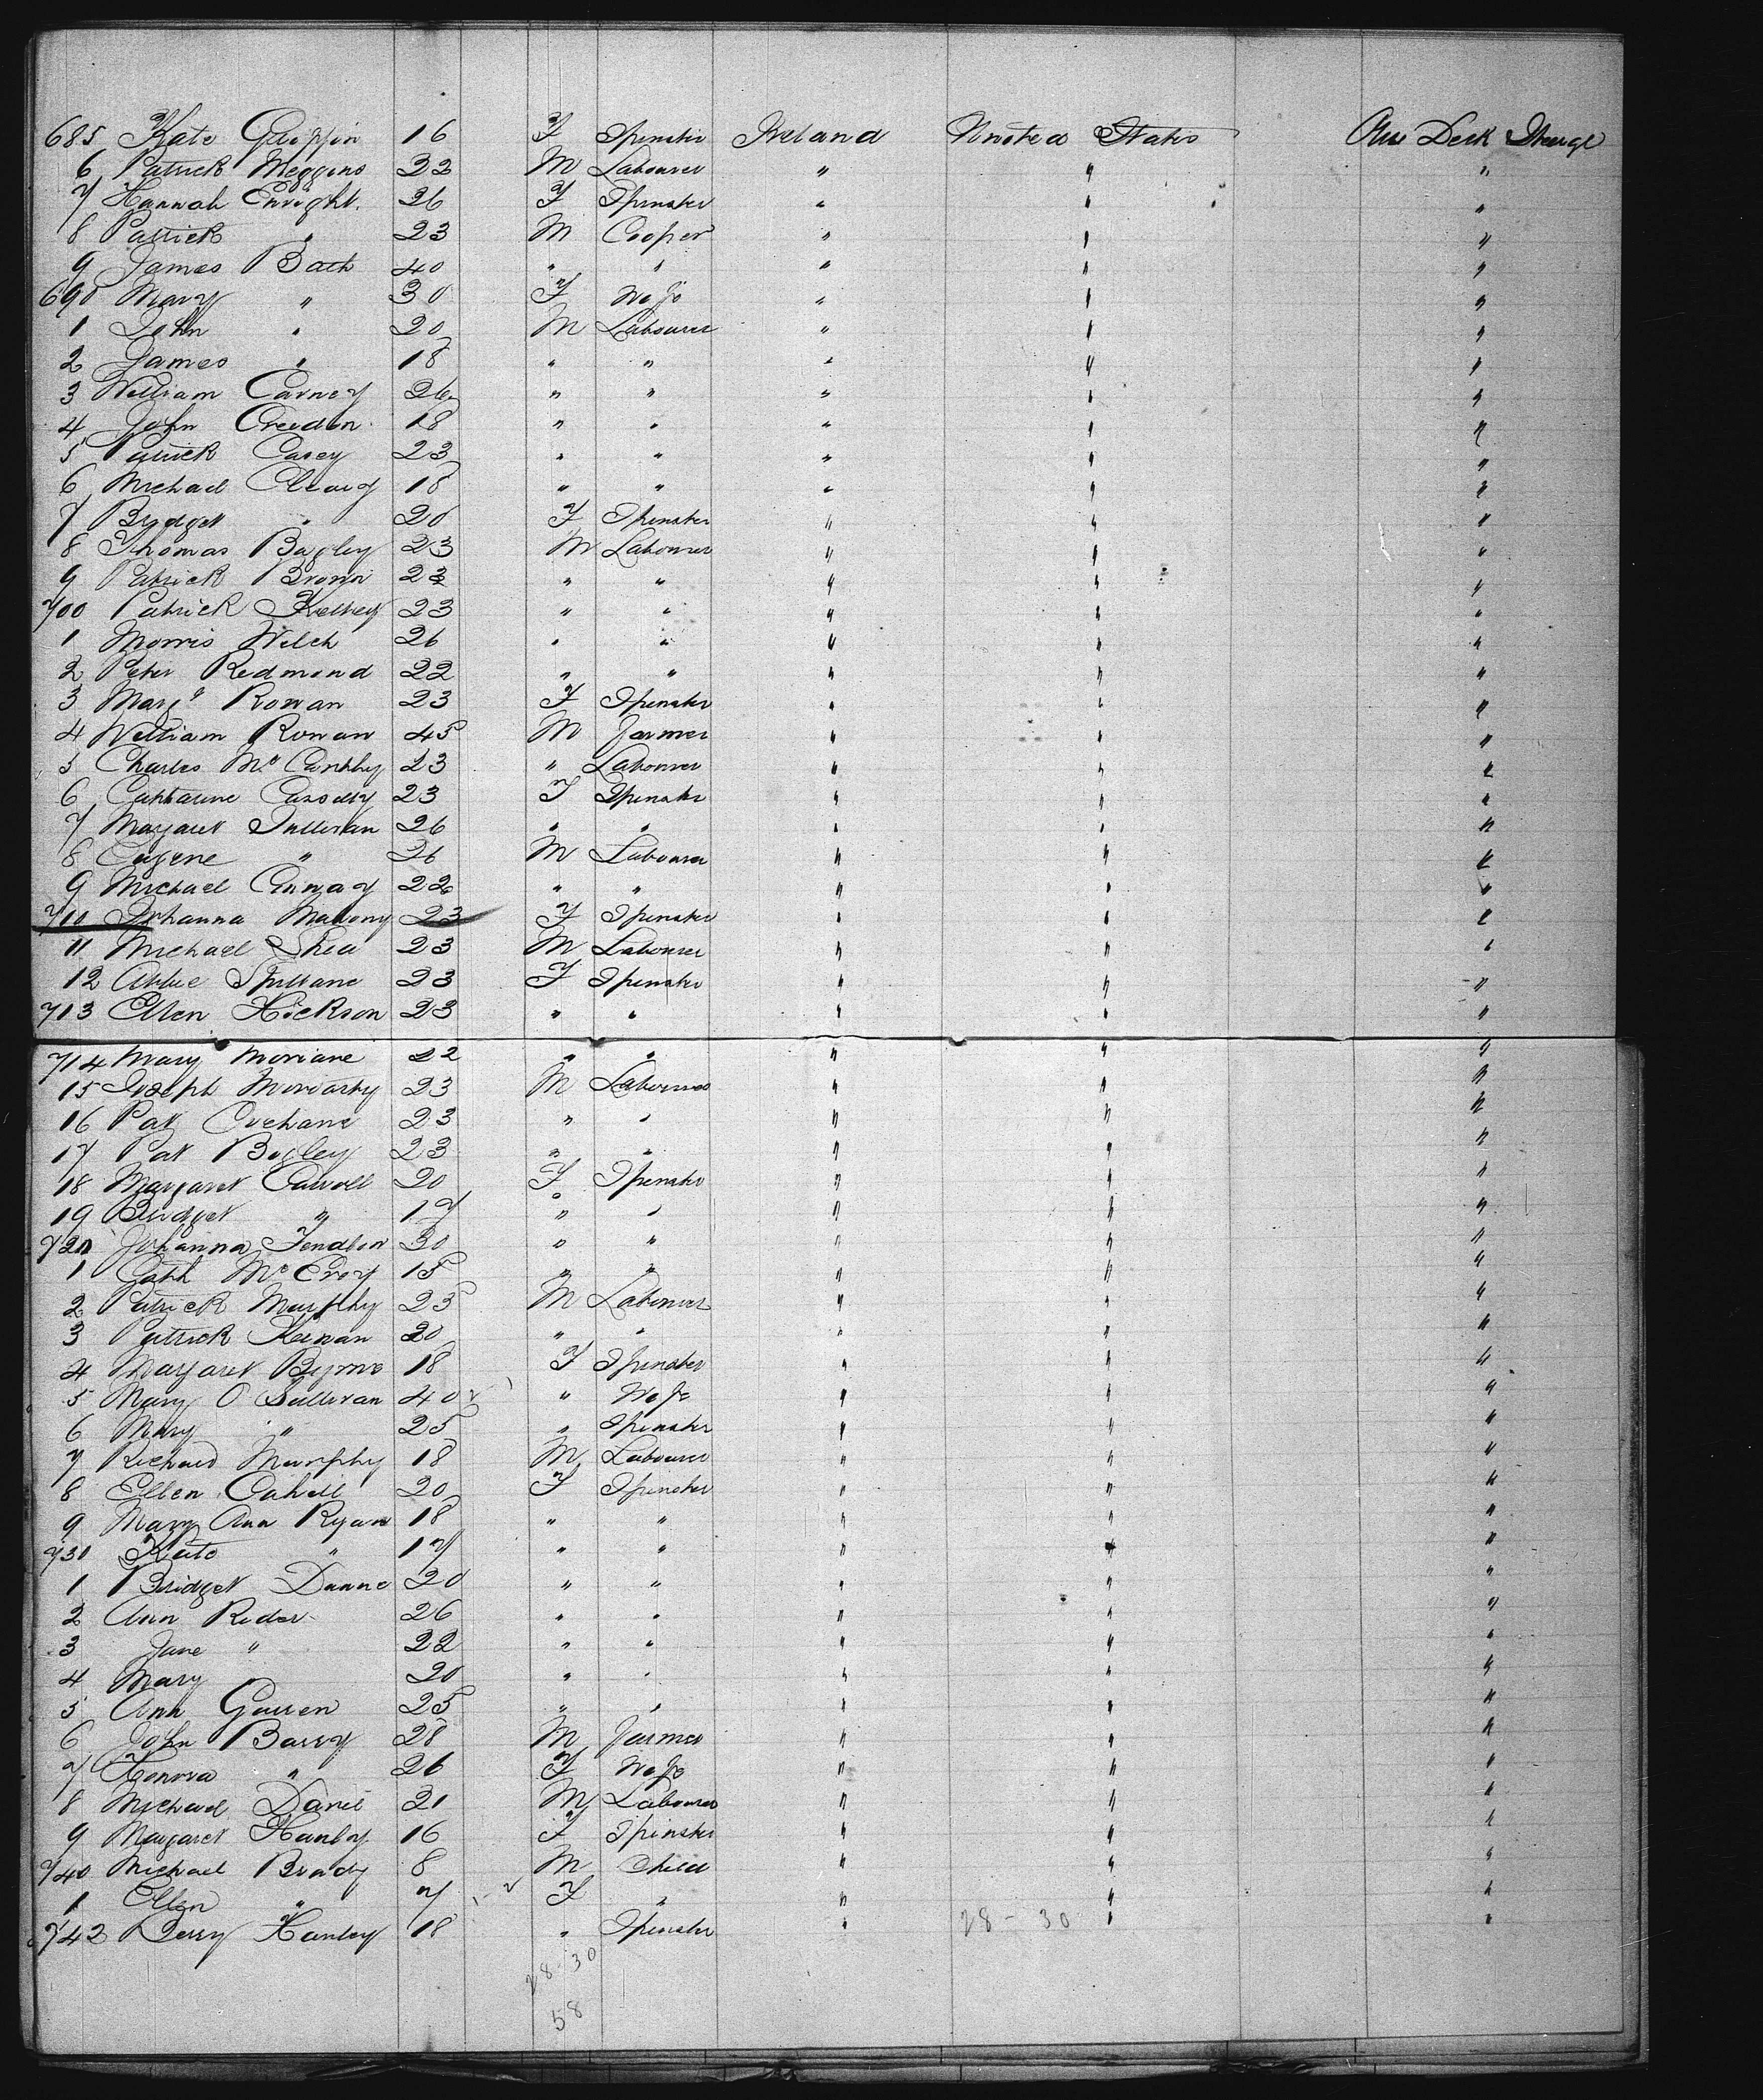 685 Kate Griffin 16 F Spinster Ireland United States One Deck Steerage
6 Patrick Meggins 22 M Labourer " " "
7 Hannah Enright 26 F Spinster " " "
8 Patrick " 23 M Cooper " " "
9 James Bath 40 " " " " "
690 Mary " 30 F Wife " " "
1 John " 20 M Labourer " " "
2 James " 18 " " " " "
3 William Carney 26 " " " " "
4 John Creedon 18 " " " " "
5 Patrick Casey 23 " " " " "
6 Michael Cleary 18 " " " " "
7 Bridget " 20 F Spinster " " "
8 Thomas Bagley 23 M Labourer " " "
9 Patrick Brown 23 " " " " "
700 Patrick Kelley 23 " " " " "
1 Morris Welch 26 " " " " "
2 Peter Redmond 22 " " " " "
3 Margt Rowan 23 F Spinster " " "
4 William Rowan 45 M Farmer " " "
5 Charles McCarthy 23 " Labourer " " "
6 Catharine Cassidy 23 F Spinster " " "
7 Margaret Sullivan 26 " " " " "
8 Eugene " 26 M Labourer " " "
9 Michael Conway 22 " " " " "
710 Johanna Mahony 23 F Spinster " " "
11 Michael Shea 23 M Labourer " " "
12 Abbie Spillane 23 F Spinster " " "
713 Ellen Hickson 23 " " " " "
714 Mary Moriane 22 " " " " "
15 Joseph Moriarty 23 M Labourer " " "
16 Pat 23 " " " " "
17 Pat Bagley 23 " " " " "
18 Margaret Carroll 20 F Spinster " " "
19 Bridget " 17 " " " " "
720 Johanna Fendlon 30 " " " " "
1 Cath McEvoy 15 " " " " "
2 Patrick Murphy 23 M Labourer " " "
3 Patrick Keenan 20 " " " " "
4 Margaret Byrne 18 F Spinster " " "
5 Mary O Sullivan 40 " Wife " " "
6 Mary " 25 " Spinster " " "
7 Richard Murphy 18 M Labourer " " "
8 Ellen Cahill 20 F Spinster " " "
9 Mary Ann Ryan 18 " " " " "
730 Kate " 17 " " " " "
1 Bridget Dunne 20 " " " " "
2 Ann Rider 26 " " " " "
3 Jane " 22 " " " " "
4 Mary 20 " " " " "
5 Ann 25 " " " " "
6 John Barry 28 M Farmer " " "
7 Honora " 26 F Wife " " "
8 Michael 21 M Labourer " " "
9 Margaret Hanley 16 F Spinster " " "
740 Michael Brady 8 M Child " " "
1 Ellen " 7 F " " " "
742 Hanley 18 " Spinster " 28-30 " "
28-30
58